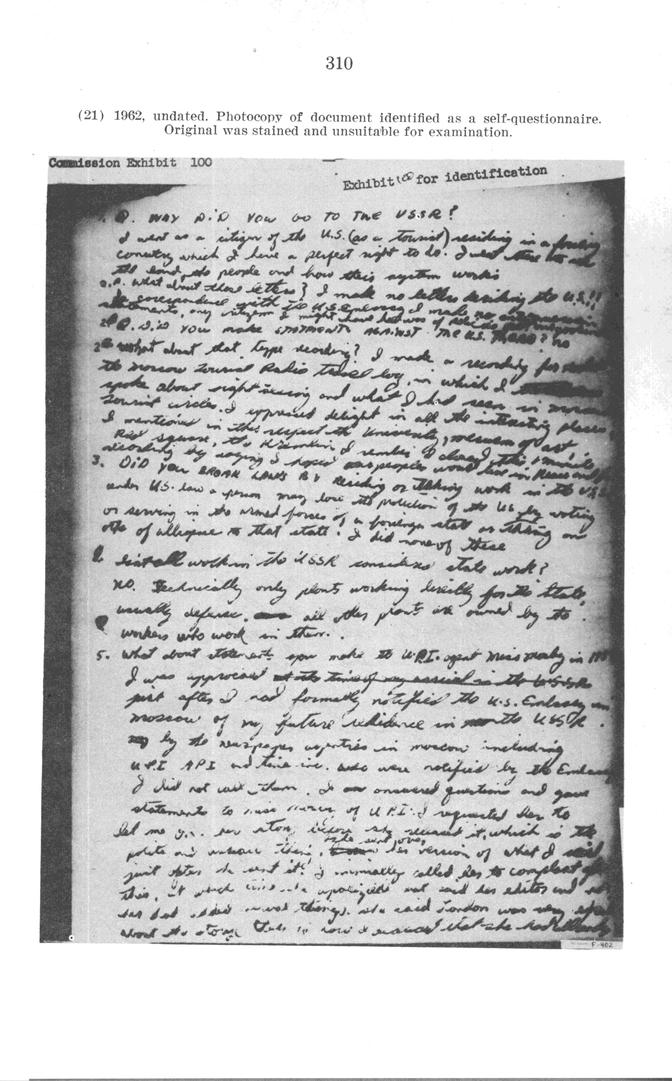 310
(21) 1962, undated. Photocopy of document identified as a self-questionnaire.
Original was stained and unsuitable for examination.
Commission Exhibit 100
Exhibit 100 for identification
1. Q. WHY DID YOU GO TO THE USSR?
I went as a citizen of the U.S. (as a tourist) residing in a
country which I have a perfect right to do. I went there to see
the land, the people and how their system works
2.Q. What about those letters? I made no letters deriding the U.S.!!
In corespondence with the U.S. embassy I made no
statements, any I might have had
2B Q. DID YOU MAKE STATEMENTS AGAINST THE U.S. THERE? no
2C What about that type recording? I made a recording for
the moscow Tourist Radio travel log, in which I
spoke about sight seeing and what I had seen in moscow
tourist circles. I expressed delight in all the interesting places
I mentioned in this respect the University, museum of art
Red square, the Kremlin I rember I closed this
recording by saying I hoped our peoples would live in Peace and
3. DID YOU BREAK LAWS BY Residing or taking work in the U.S.S.R.
under U.S. law a person may lose the protection of the U.S. by voting
or serving in the armed forces of a foreign state or taking an
othe of allegiance to that state. I did none of these
Isn't all work in the USSR considered state work?
no. Technically only plants working directly for the State,
usually defense, all other plants are owned by the
workers who work in them.
5. What about statements you made to U.P.I. agent Miss in
I was approcaed at the time of my arrival in the USSR
just after I had formally notified the U.S. Embassy in
moscow of my future residence in the USSR
by the newspaper agenties in moscow including
U.P.I API and time inc. who were notified by the Embassy
I did not call them. I answered questions and gave
statements to miss of U.P.I. I requested her to
let me her story before she released it, which is the
polite and thing, her version of what I said
just after she sent it. I immially called her to complaint of
this, at which she apologized but said her editor and
had added things. she said London was very
about the story that is how I that she had
F-402